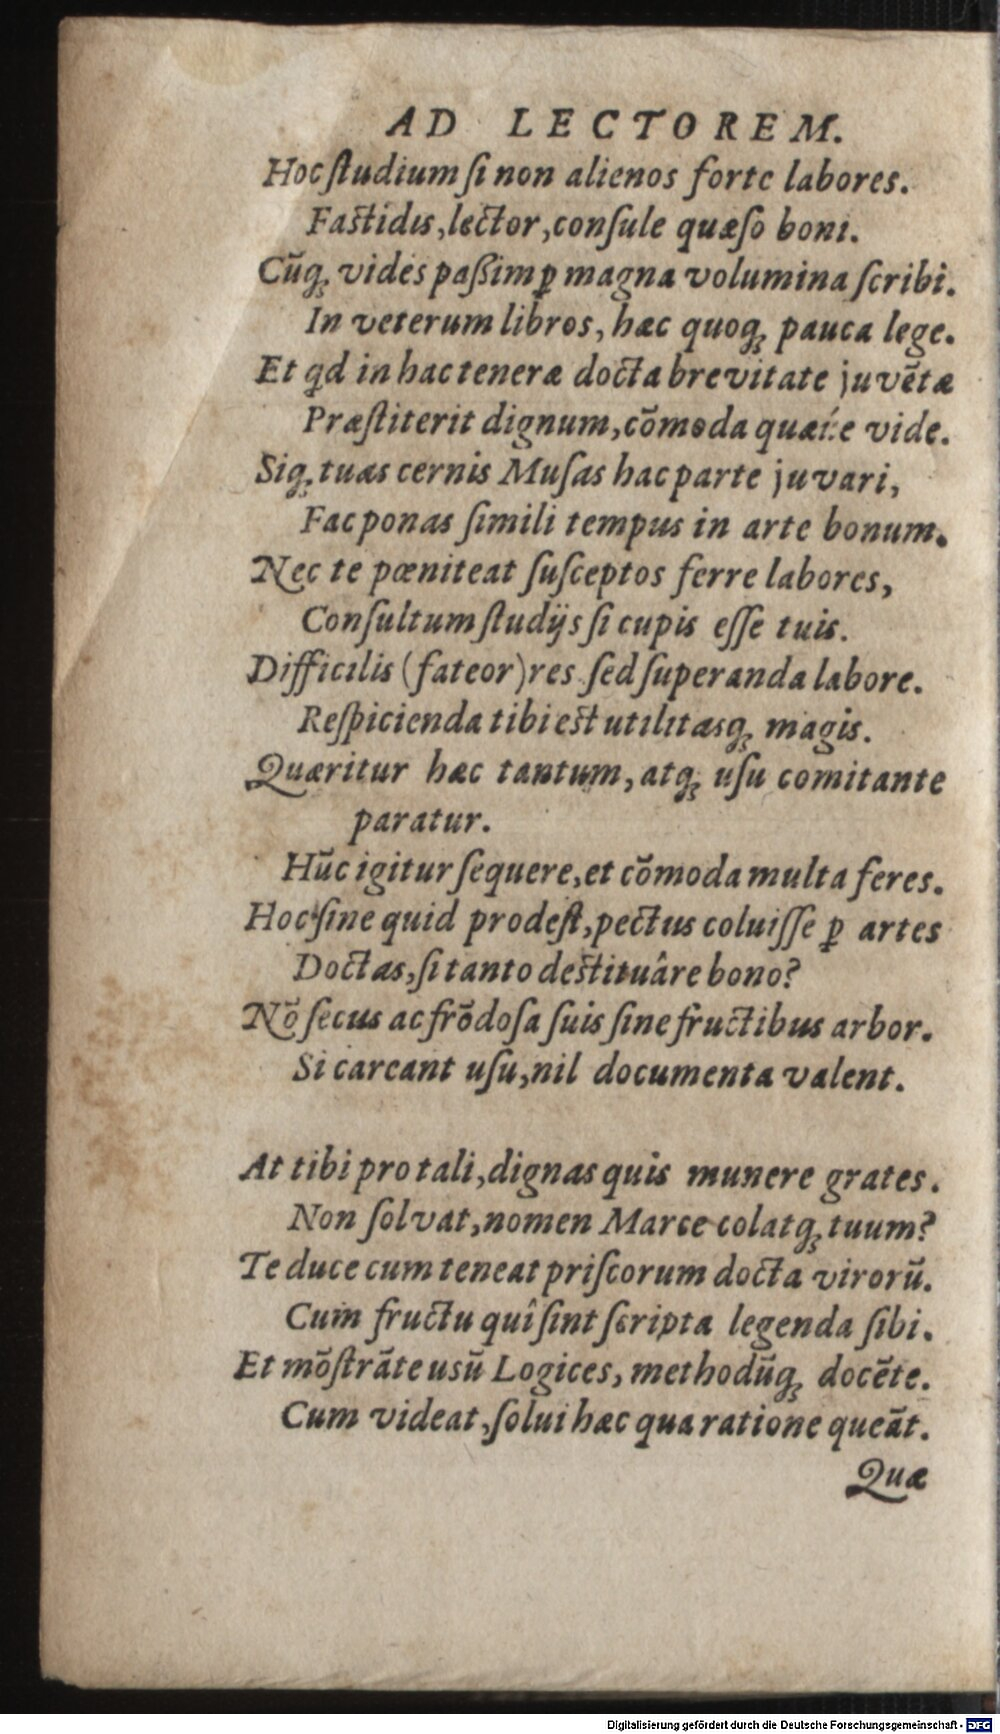 AD LECTOREM.
Hoc ſtudium ſi non alienos forte labores.
Faſtidis, lector, conſule quæſo boni.
Cũq; vides paßim ꝑ magna volumina ſcribi.
In veterum libros, hæc quoq; pauca lege.
Et qd in hac teneræ docta brevitate juvẽtæ
Præſtiterit dignum, cõmoda vide.
Siq; tuas cernis Muſas hac parte juvari,
Fac ponas ſimili tempus in arte bonum.
Nec te pœniteat ſuſceptos ferre labores,
Conſultum ſtudijs ſi cupis eſſe tuis.
Difficilis (fateor) res ſed ſuperanda labore.
Reſpicienda tibi eſt utilitasq; magis.
Quæritur hæc tantum, atq; uſu comitante
paratur.
Hũc igitur ſequere, et cõmoda multa feres.
Hoc ſine quid prodeſt, pectus coluiſſe ꝑ artes
Doctas, ſi tanto deſtituâre bono?
Nõ ſecus ac frõdoſa ſuis ſine fructibus arbor.
Si careant uſu, nil documenta valent.
At tibi pro tali, dignas quis munere grates.
Non ſolvat, nomen Marce colatq; tuum?
Te duce cum teneat priſcorum docta virorũ.
Cum fructu quî ſint ſcripta legenda ſibi.
Et mõſtrãte usũ Logices, methodũq; docẽte.
Cum videat, ſolui hæc qua ratione queãt.
Quæ
Digitalisierung gefördert durch die Deutsche Forschungsgemeinschaft - DFG